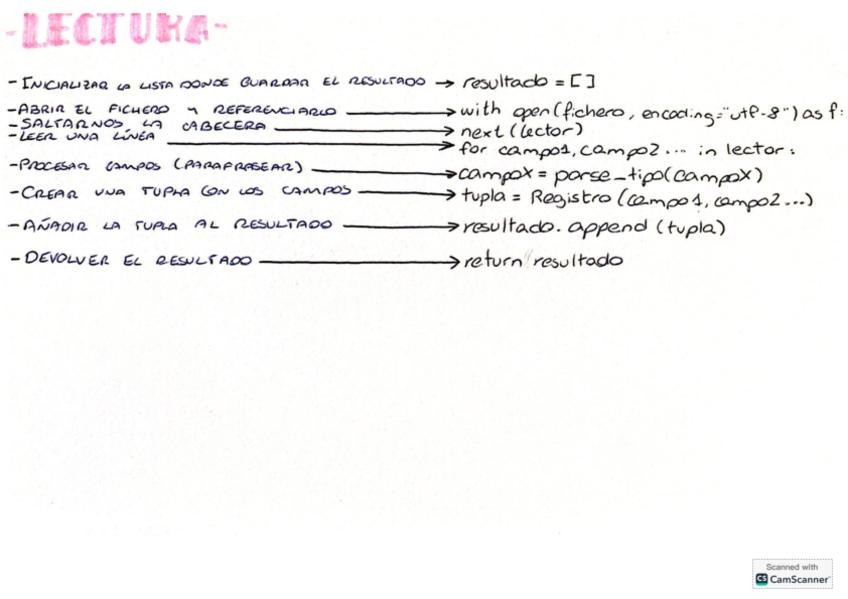 -LECTURA-
-INICIALIZAR LA LISTA DONDE GUARDAR EL RESULTADO → resultado = []
-ABRIR EL FICHERO Y REFERENCIARLO → with open(fichero, encoding="utf-8") as f:
-SALTARNOS LA CABECERA → next(lector)
-LEER UNA LÍNEA → for campo1, campo2... in lector:
-PROCESAR CAMPOS (PARAFRASEAR) → campoX = parse_tipo(campoX)
-CREAR UNA TUPLA CON LOS CAMPOS → tupla = Registro(campo1, campo2...)
-AÑADIR LA TUPLA AL RESULTADO → resultado.append(tupla)
-DEVOLVER EL RESULTADO → return resultado
Scanned with
CS CamScanner